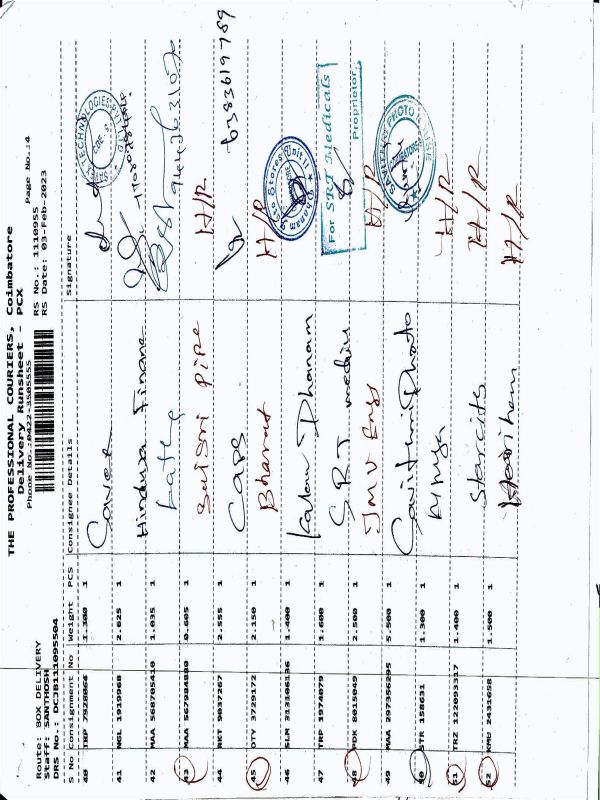 THE PROFESSIONAL COURIERS, Coimbatore
Delivery Runsheet - PCX
Phone No.:0422-3505555
Page No.:4
Route: BOX DELIVERY
RS No.: 1110955
Staff: SANTHOSH
RS Date: 03-Feb-2023
DRS No.: DCJB111095504
S No Consignment No Weight PCS Consignee Details Signature
40 TKP 7928066 1.300 1
41 NGL 1919968 2.625 1 Hinduja Finane
42 MAA 568705410 1.035 1
43 MAA 567984880 0.605 1 Sai Sri PIPE H/R
44 RKT 9037267 2.555 1 CARS 6383619789
45 OTY 3729172 2.150 1 Bharat H/R
46 SLM 313106136 1.400 1 Kalam Dhanam Dhanam Stores Unit II
47 TRP 1974079 1.600 1 SRT medicu For SRT Medicals Proprietor
48 PDK 8015049 2.500 1 JMV Engg H/R
49 MAA 297356295 5.500 1 Photo
50 STR 158631 1.300 1 H/R
51 TRZ 122093317 1.400 1 Starcits H/R
52 KMU 2431658 1.500 1 Harihem H/R